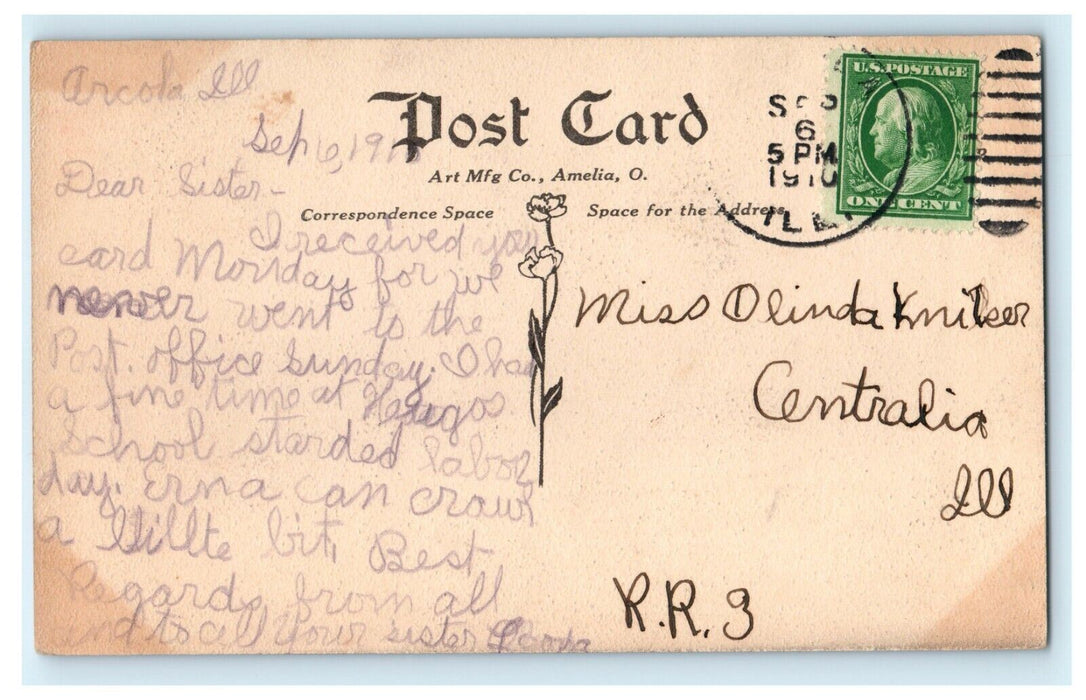 Arcola Ill
Sep 6, 1910
Dear Sister-
I received you
card Monday for we
never went to the
Post. office Sunday. I had
a fine time at Hugos
School starded labor
day. Erna can crawl
a lillte bit, Best
Regards from all
and to all your sister
Post Card
Art Mfg Co., Amelia, O.
Correspondence Space
Space for the Address
U.S. POSTAGE
ONE CENT
SEP
6
5 PM
1910
ILL.
Miss Olinda
Centralia
Ill
R.R. 3